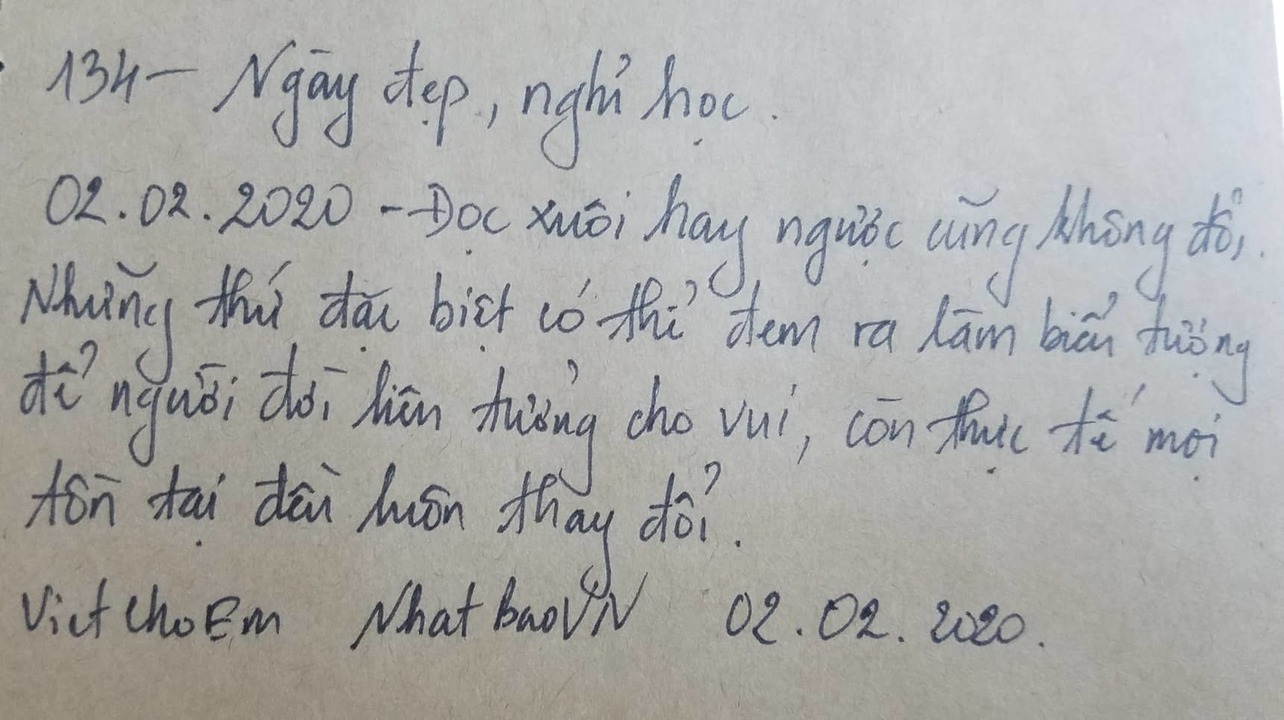 134- Ngày đẹp, nghỉ học.
02.02.2020 - Đọc xuôi hay ngược cũng không đổi.
Những thứ đặc biệt có thể đem ra làm biểu tượng
để người đời liên tưởng cho vui, còn thực tế mọi
tồn tại đều luôn thay đổi.
VietchoEm NhatbaoVN 02.02.2020.